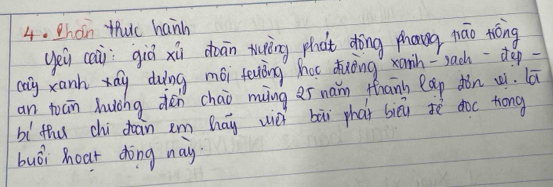 4. Phần thực hành
yêu cầu: giả xử đoàn trường phát động phong trào trồng
cây xanh xây dựng môi trường học đường xanh - sạch - đẹp -
an toàn hướng đến chào mừng 25 năm thành lập đơn vị. là
bí thư chi đoàn em hãy viết bài phát biểu để đọc trong
buổi hoạt động này.